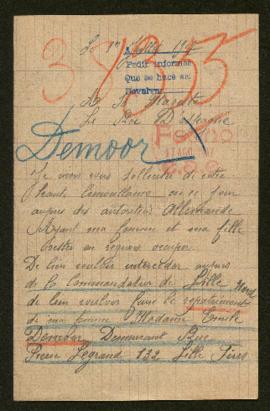 38355
Le 1er Juillet 1917
Pedir informes
Que se hace en
Navarra
A Sa Majesté
Le Roi D'Espagne
Demoor
17 AGO.
Je viens vous solliciter de votre
haute bienveillance en ce jour
auprès des autorités Allemande
Ayant ma femme et ma fille
restées en régions occupées
De bien vouloir intercéder auprès
de la Commandature de Lille Nord
de bien vouloir faire le rapatriement
de ma femme Madame Emile
Demoor Demeurant Rue
Pierre Legrand 122 Lille Fives